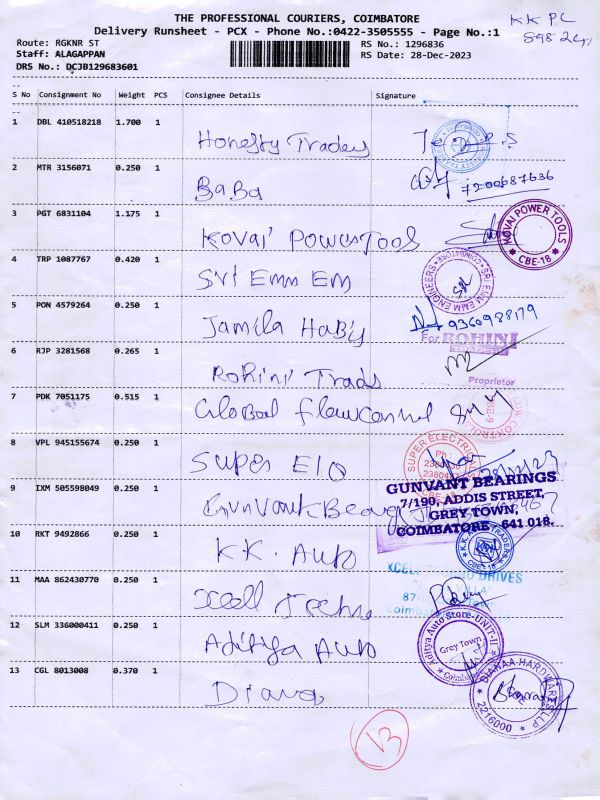 THE PROFESSIONAL COURIERS, COIMBATORE
Delivery Runsheet - PCX - Phone No.:0422-3505555 - Page No.:1
KKPC
Route: RGKNR ST
RS No.: 1296836
Staff: ALAGAPPAN
RS Date: 28-Dec-2023
DRS No.: DCJB129683601
S No Consignment No Weight PCS Consignee Details Signature
1 DBL 410518218 1.700 1 Honesty Traders
2 MTR 3156071 0.250 1 BaBa 7200687636
3 PGT 6831104 1.175 1 Kovai Power Tools
KOVAI POWER TOOLS
* CBE-18 *
4 TRP 1087767 0.420 1 Sri Emm Em
SRI EMM EMM ENGINEERS
5 PON 4579264 0.250 1 Jamila Habi 9360988179
For ROHINI
6 RJP 3281568 0.265 1 Rohini Trads
Proprietor
7 PDK 7051175 0.515 1 Global Flow
8 VPL 945155674 0.250 1 Super Ele
SUPER ELECTRICAL
Ph :
GUNVANT BEARINGS
7/190, ADDIS STREET,
GREY TOWN,
COIMBATORE - 641 018.
9 IXM 505598049 0.250 1 Gunvant Bearg
10 RKT 9492866 0.250 1 K.K. Auto
K.K. AUTO TRADERS
CBE-18
11 MAA 862430770 0.250 1 Xcell Techno
XCELL TECHNO DRIVES
12 SLM 336000411 0.250 1 Aditya Auto
Aditya Auto Store-UNIT-II
Grey Town
13 CGL 8013008 0.370 1 Diana
DIANAA HARDWARES LLP
2216000
13